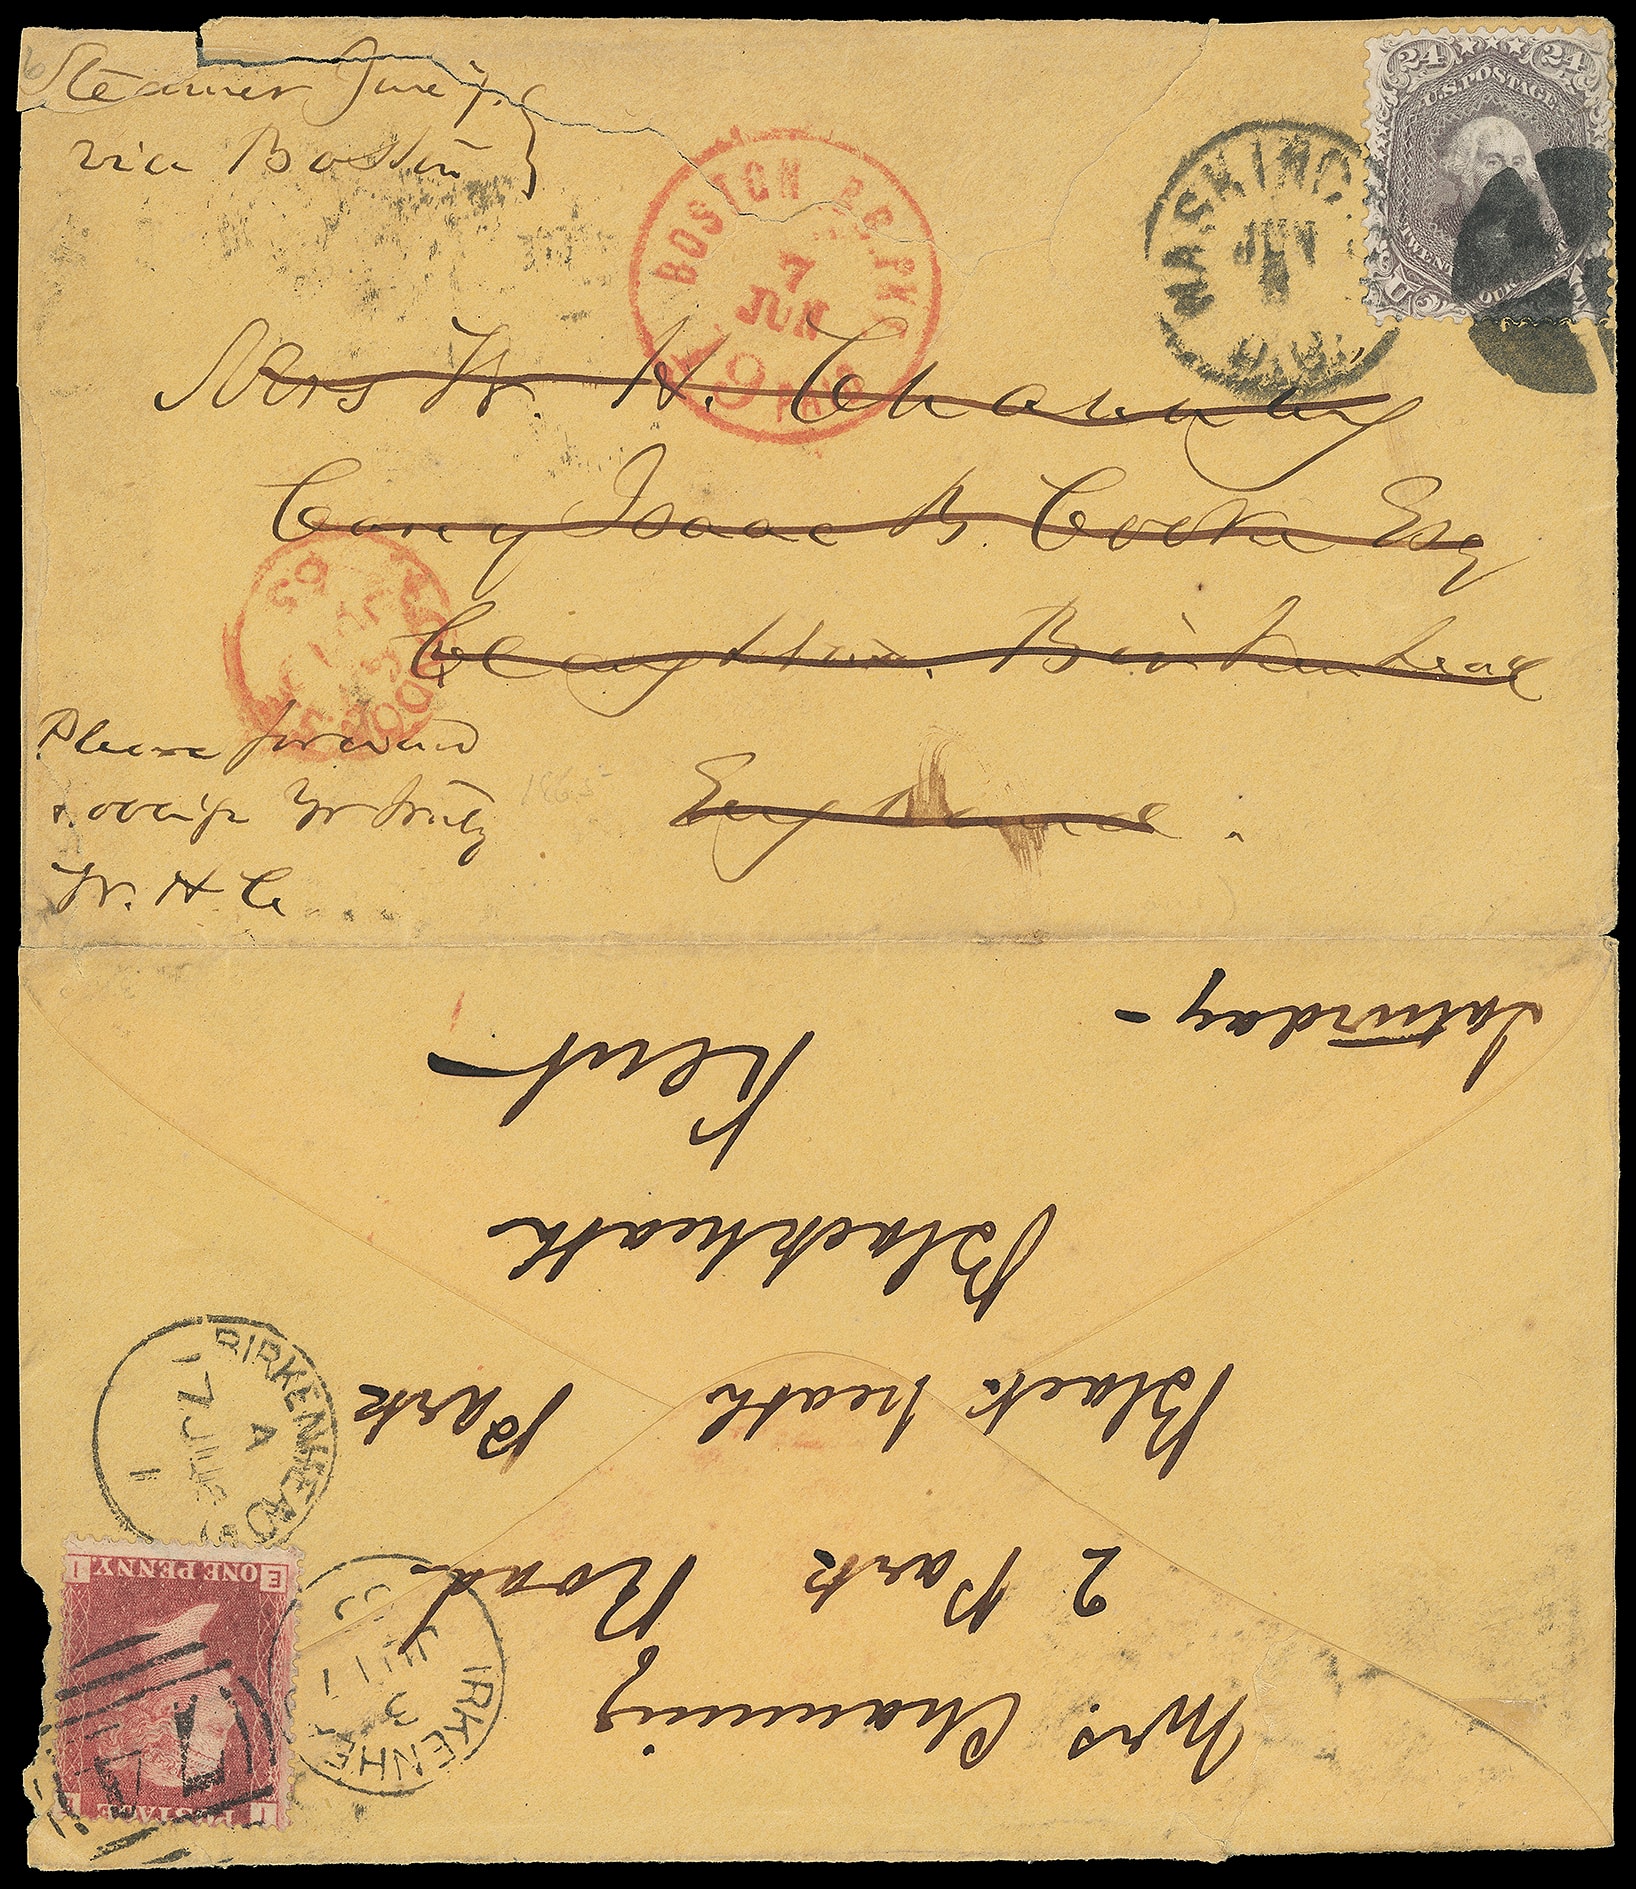 Steamer June 7.
via Boston
24 24
U.S. POSTAGE
BOSTON BR. PKT
7
JUN
PAID
WASHINGTON
JUN
Mrs W. H. Channing
Care of Isaac B. Cooke Esq
Claughton. Birkenhead
England.
LONDON
65
Please forward
& oblige Yr truly
W. H. C
1865
Saturday -
Kent -
Blackheath
Black heath Park
2 Park Road
Mrs. Channing
BIRKENHEAD
A
JU 17
BIRKENHEAD
3
JU 17
65
POSTAGE
ONE PENNY.